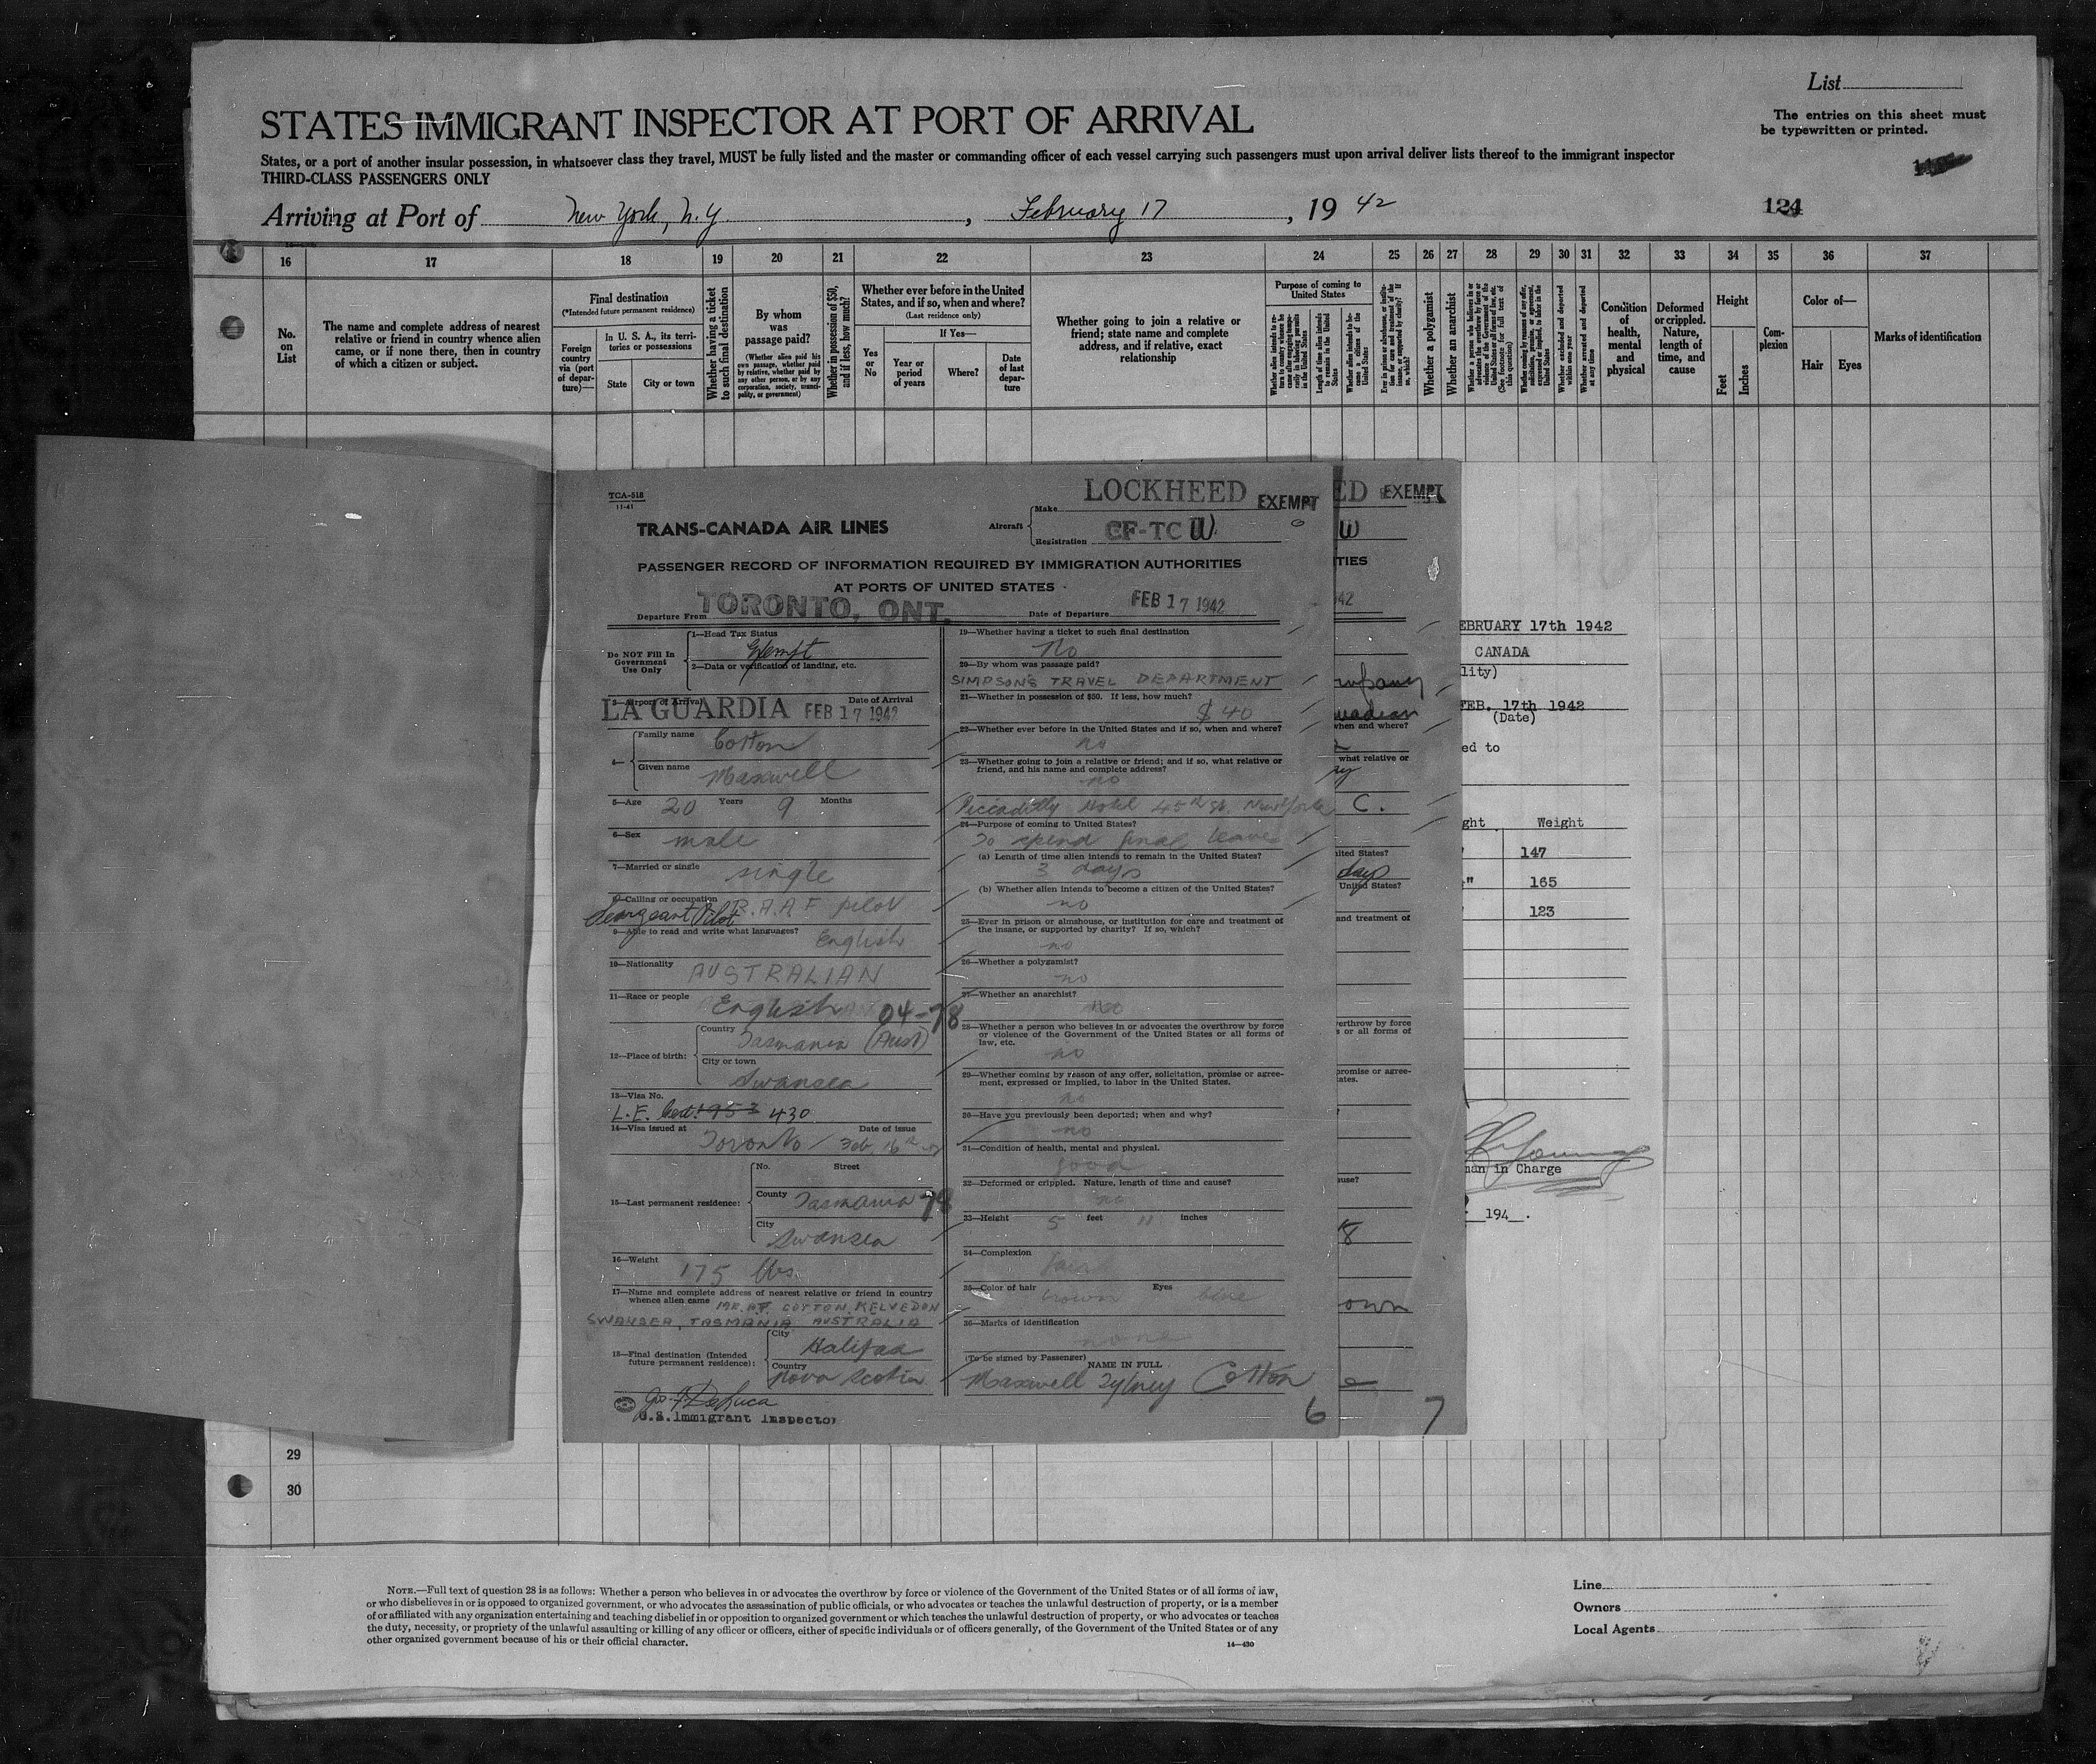 List
STATES IMMIGRANT INSPECTOR AT PORT OF ARRIVAL
The entries on this sheet must
be typewritten or printed.
States, or a port of another insular possession, in whatsoever class they travel, MUST be fully listed and the master or commanding officer of each vessel carrying such passengers must upon arrival deliver lists thereof to the immigrant inspector
THIRD-CLASS PASSENGERS ONLY
Arriving at Port of New York, N.Y. , February 17 , 19 42
124
16 17 18 19 20 21 22 23 24 25 26 27 28 29 30 31 32 33 34 35 36 37
No.
on
List
The name and complete address of nearest
relative or friend in country whence alien
came, or if none there, then in country
of which a citizen or subject.
Final destination
(*Intended future permanent residence)
Foreign
country
via (port
of depar-
ture)—
In U. S. A., its terri-
tories or possessions
State
City or town
Whether having a ticket
to such final destination
By whom
was
passage paid?
(Whether alien paid his
own passage, whether paid
by relative, whether paid by
any other person, or by any
corporation, society, munici-
pality, or government)
Whether in possession of $50,
and if less, how much?
Whether ever before in the United
States, and if so, when and where?
(Last residence only)
If Yes—
Yes
or
No
Year or
period
of years
Where?
Date
of last
depar-
ture
Whether going to join a relative or
friend; state name and complete
address, and if relative, exact
relationship
Purpose of coming to
United States
Length of time alien intends
to remain in the United
States
Whether a polygamist
Whether an anarchist
Whether excluded and deported
within one year
Whether arrested and deported
at any time
Condition
of
health,
mental
and
physical
Deformed
or crippled.
Nature,
length of
time, and
cause
Height
Feet
Inches
Com-
plexion
Color of—
Hair
Eyes
Marks of identification
TCA-518
11-41
TRANS-CANADA AIR LINES
Aircraft
Make LOCKHEED EXEMPT
Registration CF-TC W
PASSENGER RECORD OF INFORMATION REQUIRED BY IMMIGRATION AUTHORITIES
AT PORTS OF UNITED STATES
Departure From TORONTO, ONT.
Date of Departure FEB 17 1942
Do NOT Fill In
Government
Use Only
1—Head Tax Status
Exempt
2—Data or verification of landing, etc.
3—Airport of Arrival Date of Arrival
LA GUARDIA FEB 17 1942
4— Family name Cotton
Given name Maxwell
5—Age 20 Years 9 Months
6—Sex male
7—Married or single single
8—Calling or occupation
Seargeant Pilot R.A.A.F pilot
9—Able to read and write what languages? English
10—Nationality AUSTRALIAN
11—Race or people English 04-78
12—Place of birth: Country
Tasmania (Aust)
City or town
Swansea
13—Visa No.
L.E. 430
14—Visa issued at Date of issue
Toronto / Feb 16th
15—Last permanent residence: No. Street
County Tasmania 78
City Swansea
16—Weight 175 lbs.
17—Name and complete address of nearest relative or friend in country
whence alien came MR. A.F. COTTON, KELVEDON
SWANSEA, TASMANIA, AUSTRALIA
18—Final destination (Intended
future permanent residence): City Halifax
Country Nova Scotia
Jos. F. DeLuca
U.S. Immigrant Inspector
19—Whether having a ticket to such final destination
No
20—By whom was passage paid?
SIMPSON'S TRAVEL DEPARTMENT
21—Whether in possession of $50. If less, how much?
$40
22—Whether ever before in the United States and if so, when and where?
no
23—Whether going to join a relative or friend; and if so, what relative or
friend, and his name and complete address?
no
Piccadilly Hotel 45th St. New York
24—Purpose of coming to United States?
To spend final leave
(a) Length of time alien intends to remain in the United States?
3 days
(b) Whether alien intends to become a citizen of the United States?
no
25—Ever in prison or almshouse, or institution for care and treatment of
the insane, or supported by charity? If so, which?
no
26—Whether a polygamist?
no
27—Whether an anarchist?
no
28—Whether a person who believes in or advocates the overthrow by force
or violence of the Government of the United States or all forms of
law, etc.
no
29—Whether coming by reason of any offer, solicitation, promise or agree-
ment, expressed or implied, to labor in the United States.
no
30—Have you previously been deported; when and why?
no
31—Condition of health, mental and physical.
good
32—Deformed or crippled. Nature, length of time and cause?
no
33—Height 5 feet 11 inches
34—Complexion
fair
35—Color of hair Eyes
brown blue
36—Marks of identification
none
(To be signed by Passenger) NAME IN FULL
Maxwell Sydney Cotton
6
ED EXEMPT
W
TIES
42
when and where?
what relative or
C.
United States?
days
United States?
and treatment of
overthrow by force
s or all forms of
promise or agree-
ates.
ause?
own
7
EBRUARY 17th 1942
CANADA
lity)
FEB. 17th 1942
(Date)
ed to
ght Weight
147
165
123
man in Charge
194 .
29
30
NOTE.—Full text of question 28 is as follows: Whether a person who believes in or advocates the overthrow by force or violence of the Government of the United States or of all forms of law,
or who disbelieves in or is opposed to organized government, or who advocates the assassination of public officials, or who advocates or teaches the unlawful destruction of property, or is a member
of or affiliated with any organization entertaining and teaching disbelief in or opposition to organized government or which teaches the unlawful destruction of property, or who advocates or teaches
the duty, necessity, or propriety of the unlawful assaulting or killing of any officer or officers, either of specific individuals or of officers generally, of the Government of the United States or of any
other organized government because of his or their official character.
14—430
Line
Owners
Local Agents